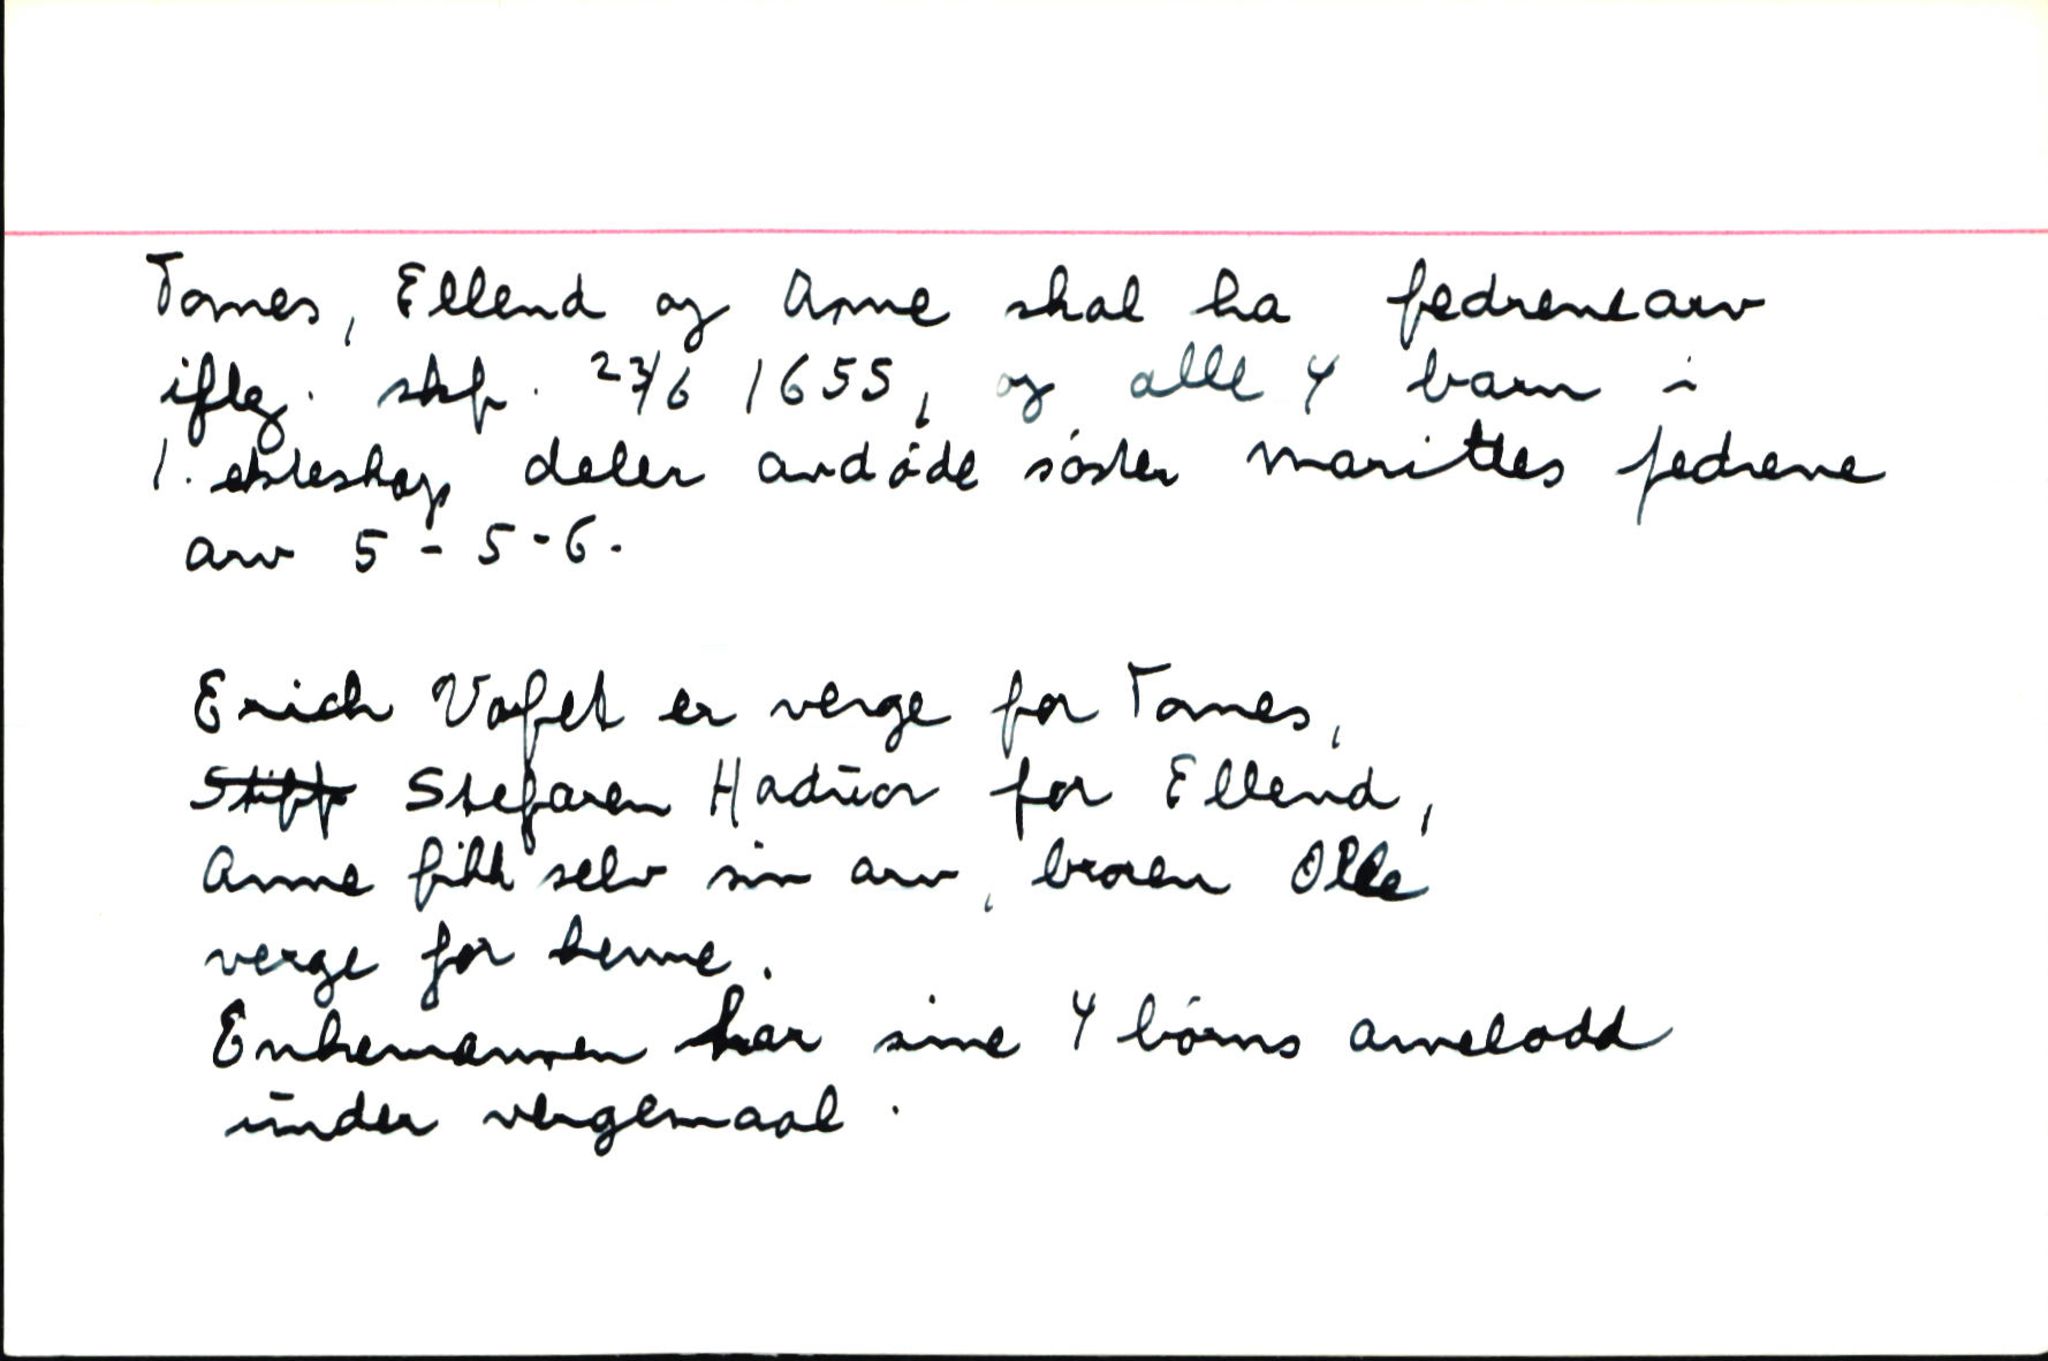 Tomes, Ellend og Anne skal ha fedrenearv
iflg. skf. 23/6 1655, og alle 4 barn i
1. ekteskap deler avdøde søster Marittes fedrene
arv 5 - 5 - 6.
Erich Vofet er verge for Tomes,
Stefaren Hadūor for Ellend,
Anne fikk selv sin arv, broren Olle
verge for henne.
Enkemannen har sine 4 børns arvelodd
ūnder vergemaal.